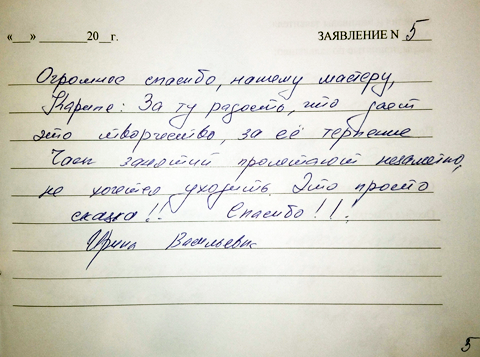 «__» ________20__г. ЗАЯВЛЕНИЕ N 5
Огромное спасибо, нашему мастеру,
Карине: За ту радость, что дает
это творчество, за её терпение
Часы занятий пролетают незаметно,
не хочется уходить. Это просто
сказка!! Спасибо!!!
Ирина Васильевна
5